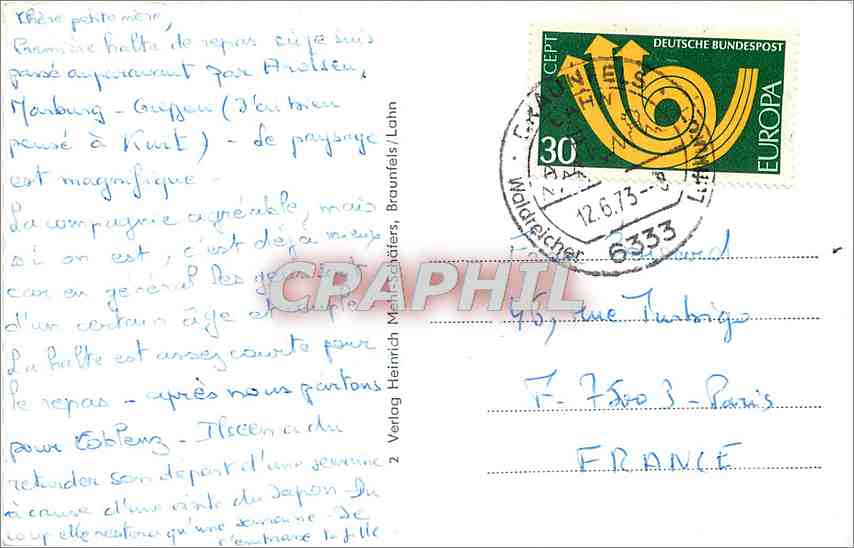 Chère petite mère,
Première halte de repas où je suis
passé auparavant par Arolsen,
Marburg - Gießen (J'ai bien
pensé à Kurt) - Le paysage
est magnifique -
La compagnie agréable, mais
si on est, c'est déjà mieux
car en général les gens sont
d'un certain âge et
La halte est assez courte pour
le repas - après nous partons
pour Coblenz - Ilseen a du
retarder son départ d'une semaine
à cause d'une visite du Japon - Du
coup elle restera qu'une semaine. Je
t'embrasse ta fille
2 Verlag Heinrich Mehl-Schäfers, Braunfels/Lahn
CEPT
DEUTSCHE BUNDESPOST
30
EUROPA
BRAUNFELS
Waldreicher Luftkurort
12.6.73
6333
46, rue Turbigo
F-75003-Paris
FRANCE
CPARPHIL